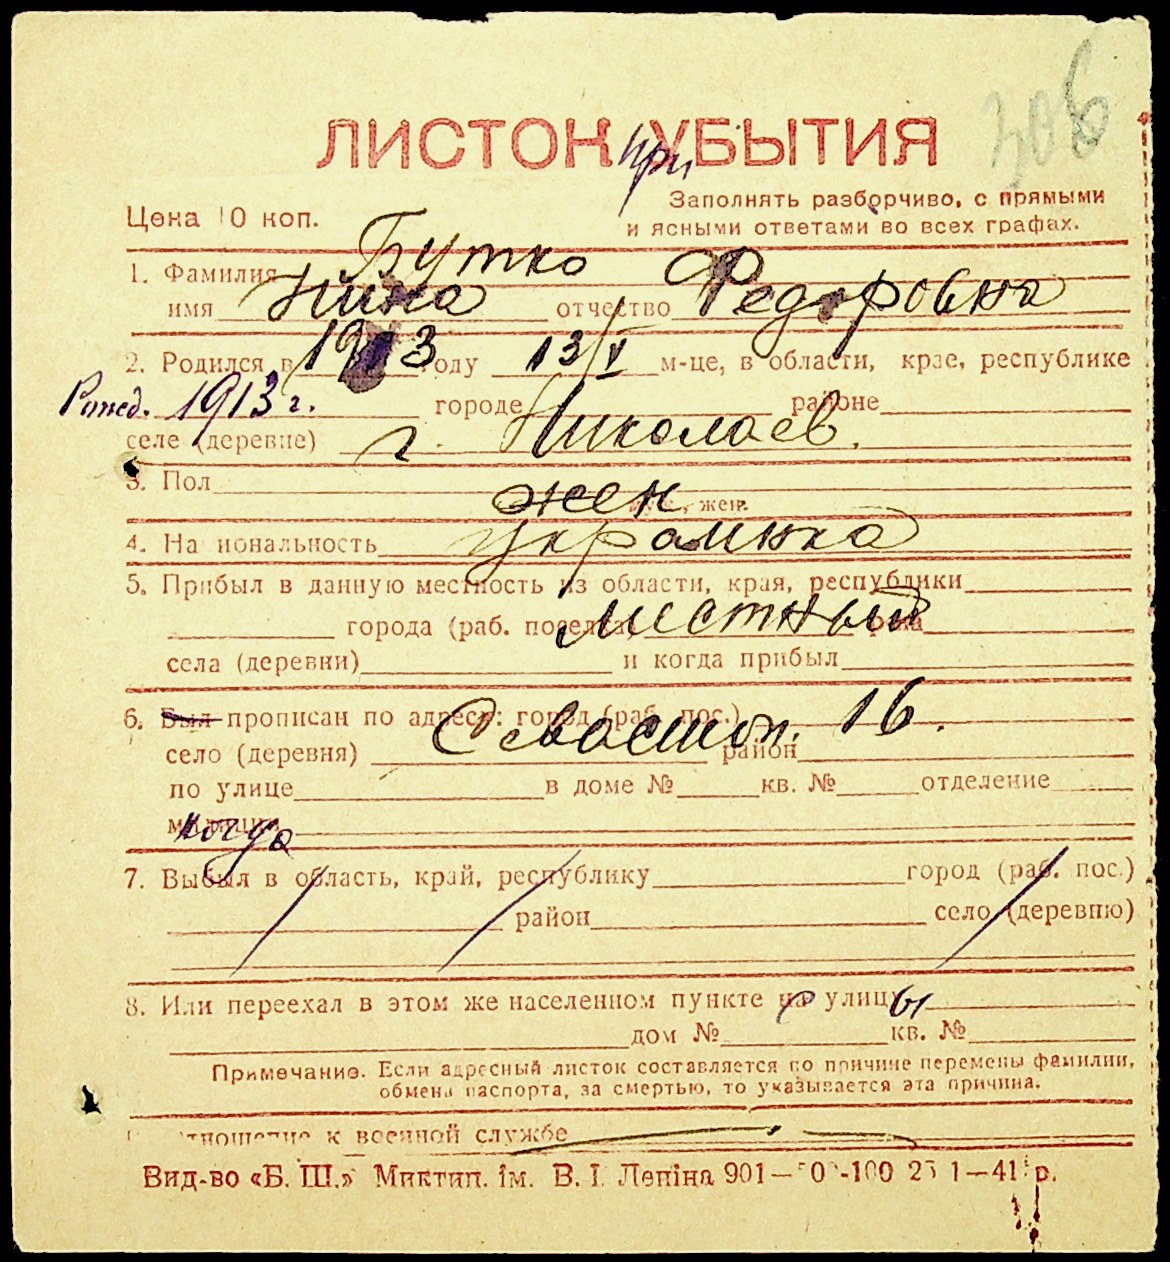 306
ЛИСТОК УБЫТИЯ
при
Цена 10 коп.
Заполнять разборчиво, с прямыми
и ясными ответами во всех графах.
1. Фамилия Бутко
имя Нина отчество Федоровна
2. Родился в 1913 году 13/V м-це, в области, крае, республике
1913 г. городе районе
селе (деревне) г. Николаев.
3. Пол жен. муж., жен.
4. Национальность украинка
5. Прибыл в данную местность из области, края, республики
города (раб. поселка) местный р-на
села (деревни) и когда прибыл
6. Был прописан по адресу: город (раб. пос.)
Севастоп. 16.
село (деревня) район
по улице в доме № кв. № отделение
милиции
когда
7. Выбыл в область, край, республику город (раб. пос.)
район село (деревню)
8. Или переехал в этом же населенном пункте на улицу ы
дом № кв. №
Примечание. Если адресный листок составляется по причине перемены фамилии,
обмена паспорта, за смертью, то указывается эта причина.
тношение к военной службе
Вид-во «Б. Ш.» Миктип. ім. В. І. Леніна 901— 0 -100 2 1—41 р.